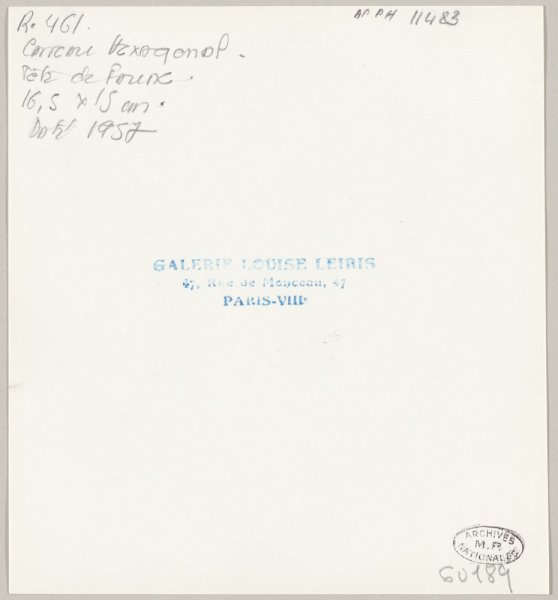 R. 461.
AP PH 11483
Carreau hexagonal.
Tête de Faune.
16,5 x 15 cm.
Daté 1957
GALERIE LOUISE LEIRIS
47, Rue de Monceau, 47
PARIS-VIIIe
ARCHIVES
M.P.
NATIONALES
60189